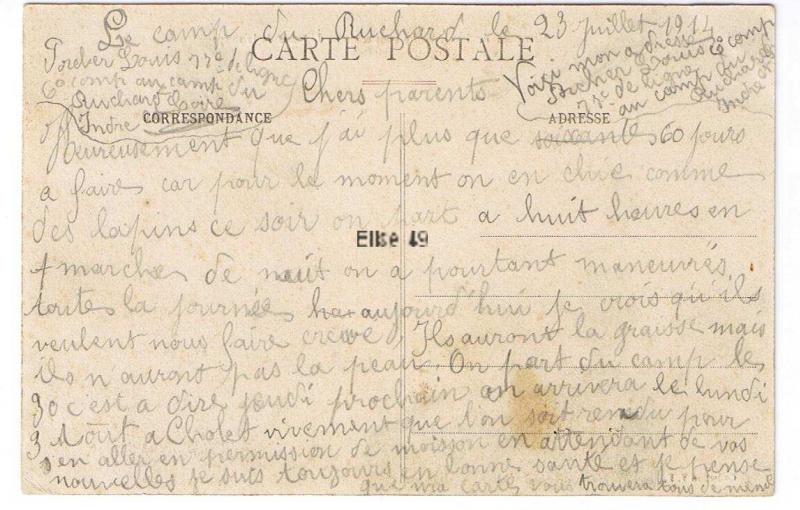 Le camp du Ruchard le 23 juillet 1914
CARTE POSTALE
Porcher Louis 77e de ligne
6e comp au camp du
Ruchard
Indre Loire
Voici mon adresse
Porcher Louis 6e comp
77e de ligne
au camp du
Ruchard
Indre et
CORRESPONDANCE
ADRESSE
Chers parents
heureusement que j'ai plus que soixante 60 jours
a faire car pour le moment on en chie comme
des lapins ce soir on part a huit heures en
marche de nuit on a pourtant maneuvrés
toute la journée aujourd'hui je crois qu'ils
veulent nous faire crever Ils auront la graisse mais
ils n'auront pas la peau. On part du camp le
30 c'est a dire jeudi prochain on arrivera le lundi
3 Aout a Cholet vivement que l'on soit rendu pour
s'en aller en permission de moisson en attendant de vos
nouvelles je suis toujours en bonne santé et je pense
que ma carte vous trouvera tous de même
Elise 49